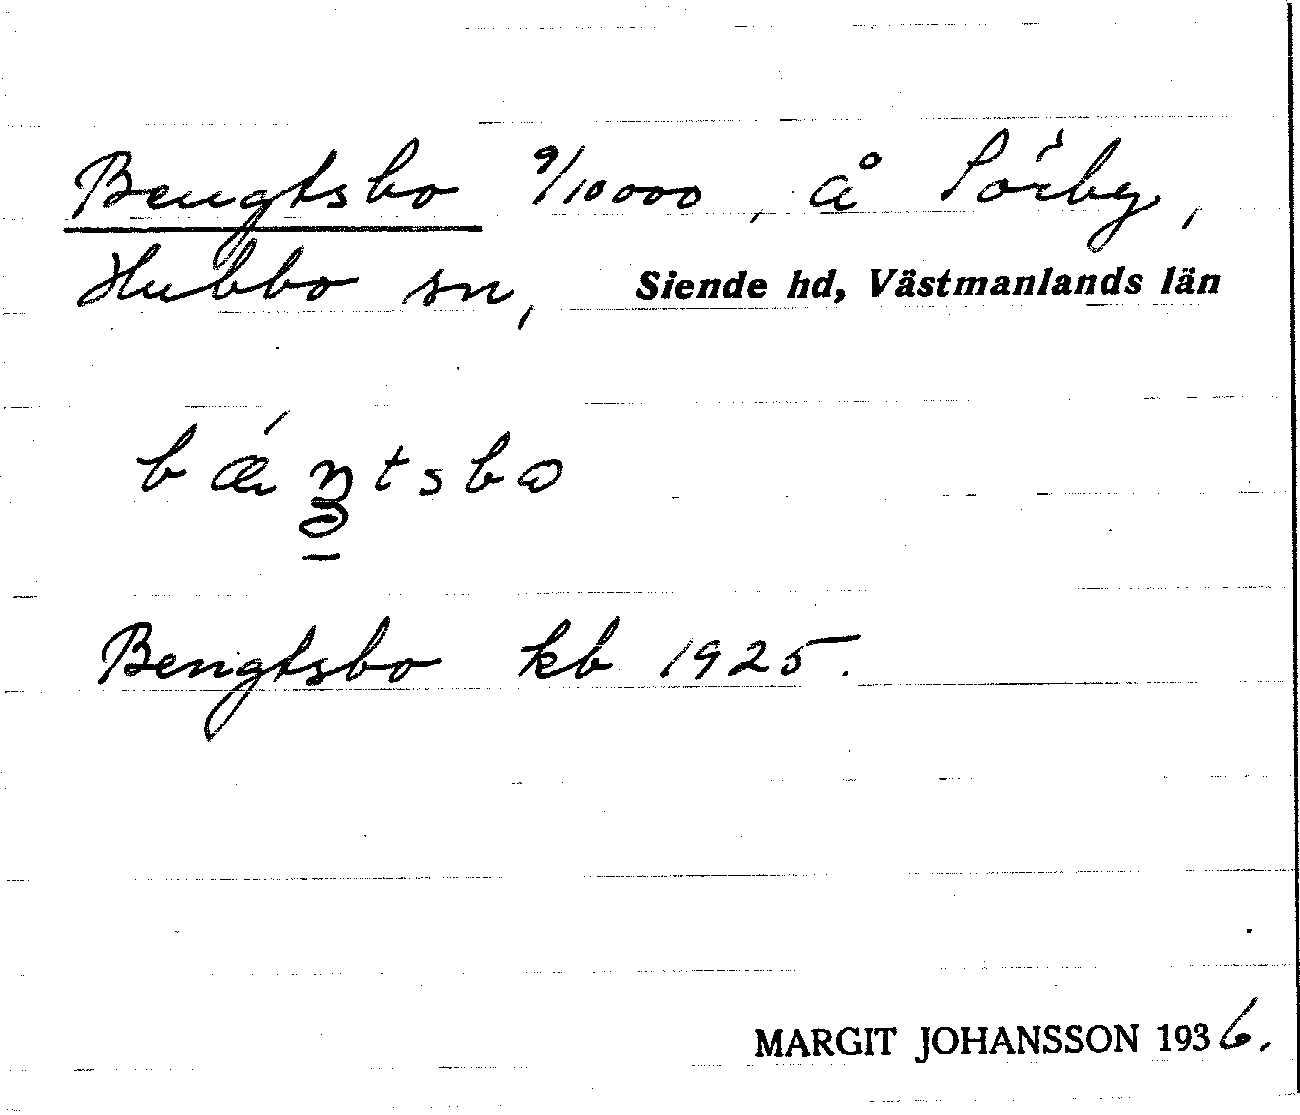 Bengtsbo 9/10000, å Sörby,
Hubbo sn, Siende hd, Västmanlands län
bǽŋtsbω
Bengtsbo kb 1925.
MARGIT JOHANSSON 1936.